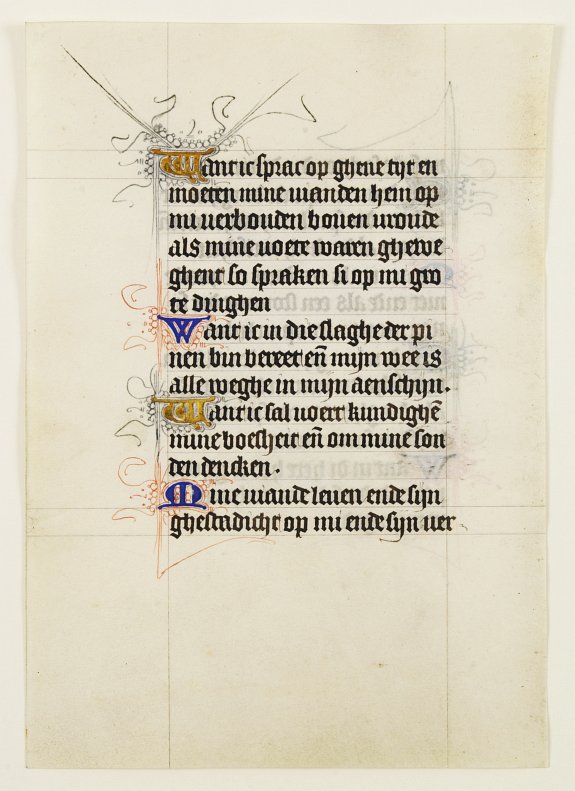 Want ic sprac op ghene tyt en
moeten mine vianden hem op
mi verbouden boven vroude
als mine voete waren ghewe
ghent so spraken si op mi gro
te dinghen
Want ic in die slaghe der pi
nen bin bereet eñ mijn wee is
alle weghe in mijn aenschijn.
Want ic sal voert kundighē
mine boesheit eñ om mine son
den dencken.
Mine viande leven ende sijn
ghestadicht op mi ende sijn ver